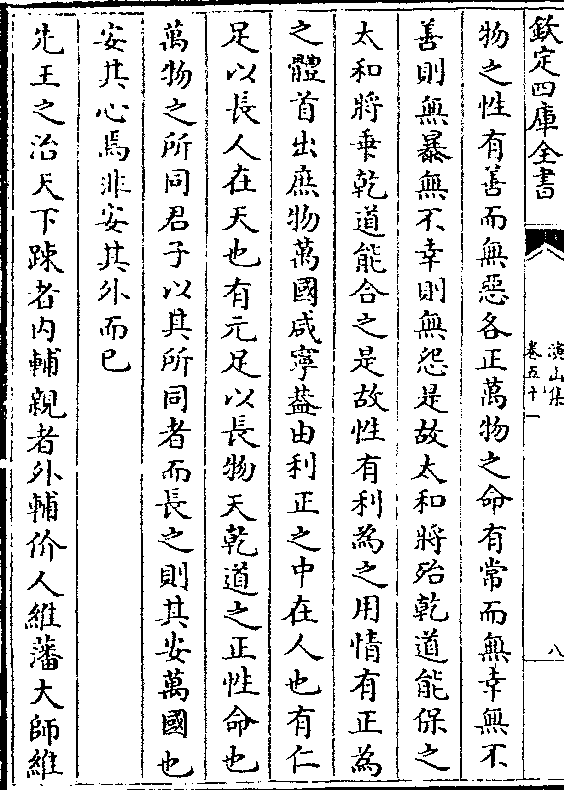 欽定四庫全書
演山集
卷五十一
八
物之性有善而無惡各正萬物之命有常而無幸無不
善則無暴無不幸則無怨是故太和將殆乾道能保之
太和將乗乾道能合之是故性有利為之用情有正為
之體首出庶物萬國咸寧葢由利正之中在人也有仁
足以長人在天也有元足以長物天乾道之正性命也
萬物之所同君子以其所同者而長之則其安萬國也
安其心焉非安其外而已
先王之治天下踈者内輔親者外輔价人維藩大師維